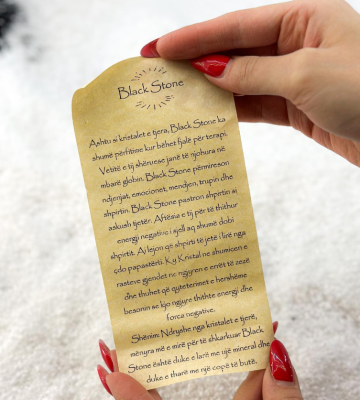 Black Stone
Ashtu si kristalet e tjera, Black Stone ka
shumë përfitime kur bëhet fjalë për terapi.
Vetitë e tij shëruese janë të njohura në
mbarë globin. Black Stone përmireson
ndjenjat, emocionet, mendjen, trupin dhe
shpirtin. Black Stone pastron shpirtin si
askush tjetër. Aftësia e tij për të thithur
energji negative i sjell aq shumë dobi
shpirtit. Aj lejon që shpirti të jetë i lirë nga
çdo papastërti. K.y Kristal ne shumicen e
rasteve gjendet ne ngjyren e errët të zezë
dhe thuhet që qytetërimet e hershëme
besonin se kjo ngjyre thithte energji dhe
forca negative.
Shënim: Ndryshe nga kristalet e tjerë,
mënyra më e mirë për të shkarkuar Black
Stone është duke e larë me ujë mineral dhe
duke e tharë me një copë të butë.